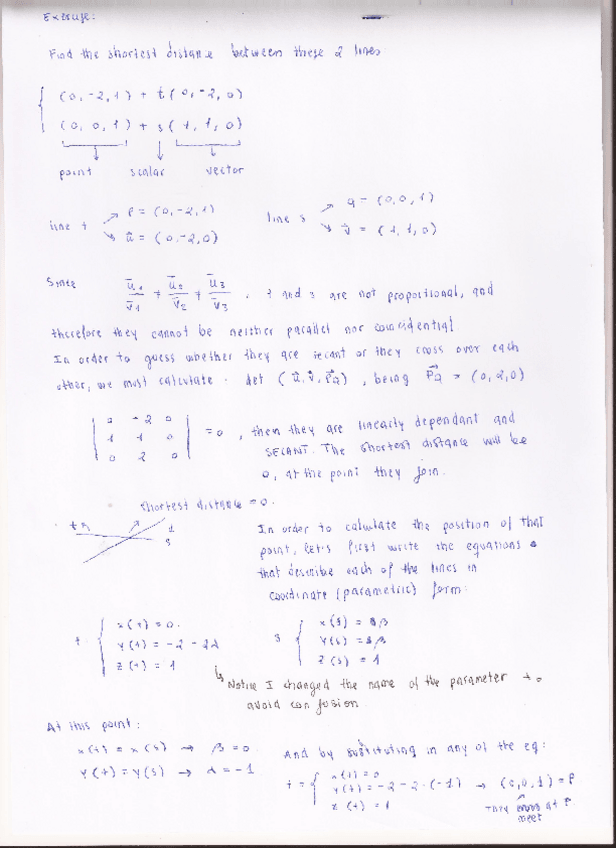 Exercise:
Find the shortest distance between these 2 lines
(0, -2, 1) + t (0, -2, 0)
(0, 0, 1) + s (1, 1, 0)
point scalar vector
line t P = (0, -2, 1) line s Q = (0, 0, 1)
u = (0, -2, 0) v = (1, 1, 0)
Since u1/v1 ≠ u2/v2 ≠ u3/v3, t and s are not proportional, and
therefore they cannot be neither parallel nor coincidential
In order to guess whether they are secant or they cross over each
other, we must calculate. det (u, v, PQ), being PQ = (0, 2, 0)
0 -2 0
1 1 0 = 0, then they are linearly dependant and
0 2 0 SECANT. The shortest distance will be
0, at the point they join.
shortest distance = 0.
In order to calculate the position of that
point, let's first write the equations
that describe each of the lines in
coordinate (parametric) form:
t: x(t) = 0. s x(s) = β
y(t) = -2 - 2λ y(s) = β
z(t) = 1 z(s) = 1
Notice I changed the name of the parameter to
avoid confusion
At this point:
x(t) = x(s) → β = 0.
y(t) = y(s) → λ = -1
And by substituting in any of the eq:
t = x(t) = 0
y(t) = -2 - 2·(-1) → (0, 0, 1) = P
z(t) = 1
They meet at P.